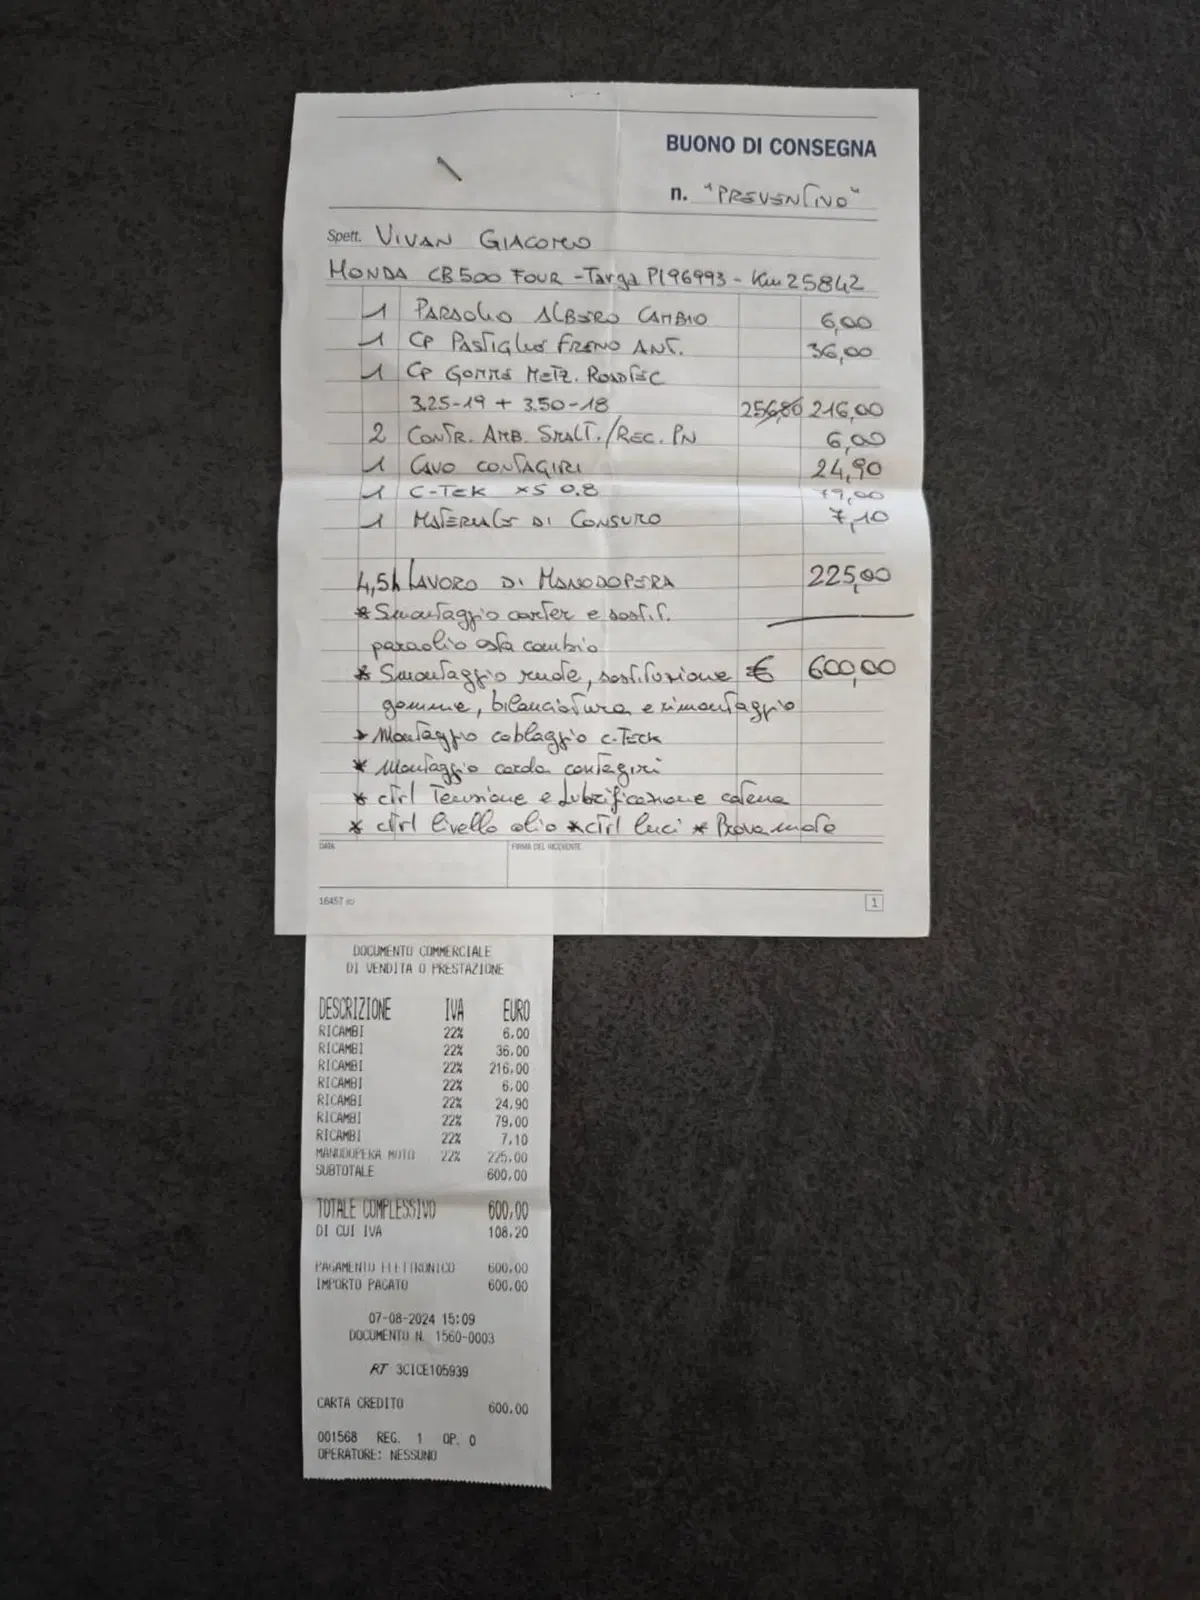 BUONO DI CONSEGNA
n. "PREVENTIVO"
Spett. VIVAN GIACOMO
HONDA CB500 FOUR - Targa PI96993 - Km 25842
1 PARAOLIO ALBERO CAMBIO 6,00
1 CP PASTIGLIE FRENO ANT. 36,00
1 CP GOMME METZ. ROADTEC
3.25-19 + 3.50-18 256,80 216,00
2 CONTR. AMB. SMALT./REC. PN 6,00
1 CAVO CONTAGIRI 24,90
1 C-TEK XS 0.8 79,00
1 MATERIALE DI CONSUMO 7,10
4,5h LAVORO DI MANODOPERA 225,00
* Smontaggio carter e sostit.
paraolio asta cambio
* Smontaggio ruote, sostituzione € 600,00
gomme, bilanciatura e rimontaggio
* Montaggio cablaggio C-TECK
* Montaggio corda contagiri
* ctrl Tensione e Lubrificazione catena
* ctrl livello olio * ctrl luci * Prova moto
DATA FIRMA DEL RICEVENTE
16457 (C) 1
DOCUMENTO COMMERCIALE
DI VENDITA O PRESTAZIONE
DESCRIZIONE IVA EURO
RICAMBI 22% 6,00
RICAMBI 22% 36,00
RICAMBI 22% 216,00
RICAMBI 22% 6,00
RICAMBI 22% 24,90
RICAMBI 22% 79,00
RICAMBI 22% 7,10
MANODOPERA MOTO 22% 225,00
SUBTOTALE 600,00
TOTALE COMPLESSIVO 600,00
DI CUI IVA 108,20
PAGAMENTO ELETTRONICO 600,00
IMPORTO PAGATO 600,00
07-08-2024 15:09
DOCUMENTO N. 1560-0003
RT 3CICE105939
CARTA CREDITO 600,00
001568 REG. 1 OP. 0
OPERATORE: NESSUNO